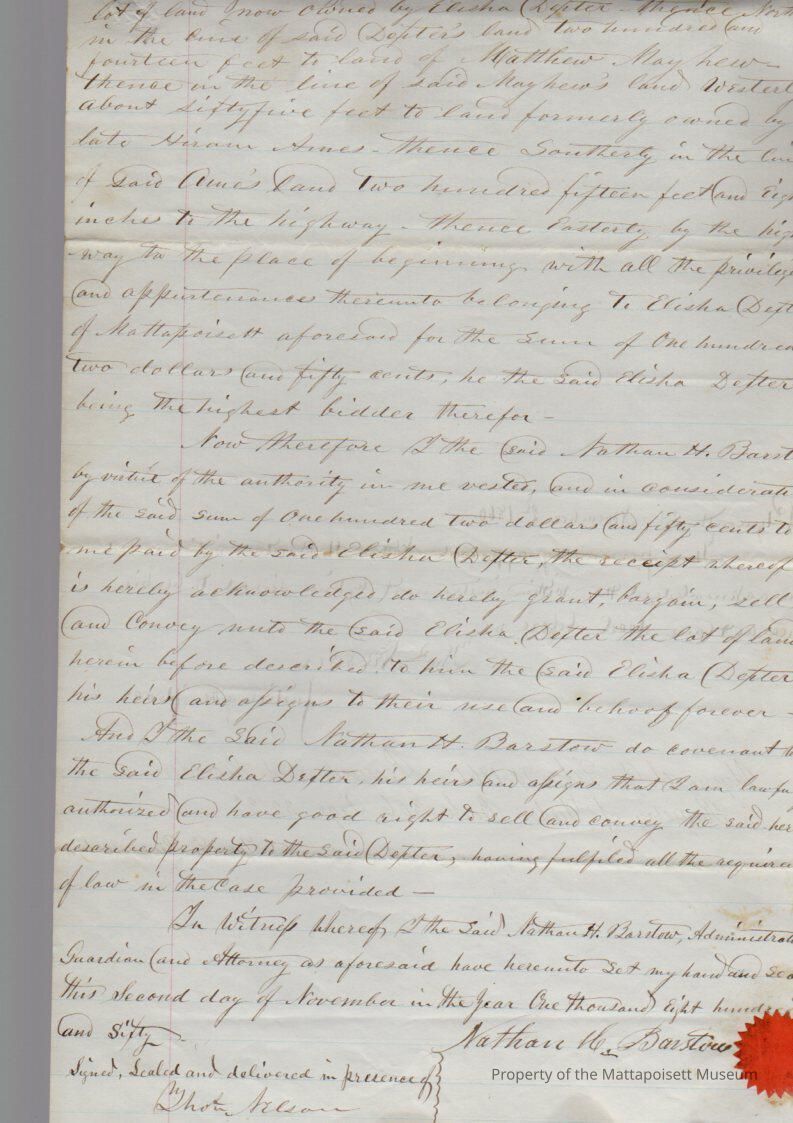 lot of land now owned by Elisha Dexter thence Nort
in the line of said Dexter's land two hundred and
fourteen feet to land of Matthew Mayhew -
thence in the line of said Mayhew's land Westerl
about sixty five feet to land formerly owned by
late Hiram Ames - thence Southerly in the lin
of said Ame's land Two hundred fifteen feet and Eig
inches to the highway - thence Easterly by the hig
-way to the place of beginning with all the privileg
and appurtenances thereunto belonging to Elisha Dext
of Mattapoisett aforesaid for the sum of One hundred
two dollars and fifty cents, he the said Elisha Dexter
being the highest bidder therefor -
Now therefore I the said Nathan H. Barst
by virtue of the authority in me vested, and in considerati
of the said sum of One hundred two dollars and fifty cents to
me paid by the said Elisha Dexter, the receipt whereof
is hereby acknowledged do hereby grant, bargain, sell
and Convey unto the said Elisha Dexter the lot of land
herein before described to him the said Elisha Dexter
his heirs and assigns to their use and behoof forever -
And I the said Nathan H. Barstow do covenant
the said Elisha Dexter, his heirs and assigns that I am lawfu
authorized and have good right to sell and convey the said her
described property to the said Dexter, having fulfiled all the require
of law in the case provided -
In Witness whereof, I the said Nathan H. Barstow, Administrat
Guardian and Attorney as aforesaid have hereunto set my hand and sea
this Second day of November in the Year One thousand Eight hundr
and Sixty
Nathan H. Barstow
Signed, Sealed and delivered in presence of
Property of the Mattapoisett Museum
Thos. Nelson